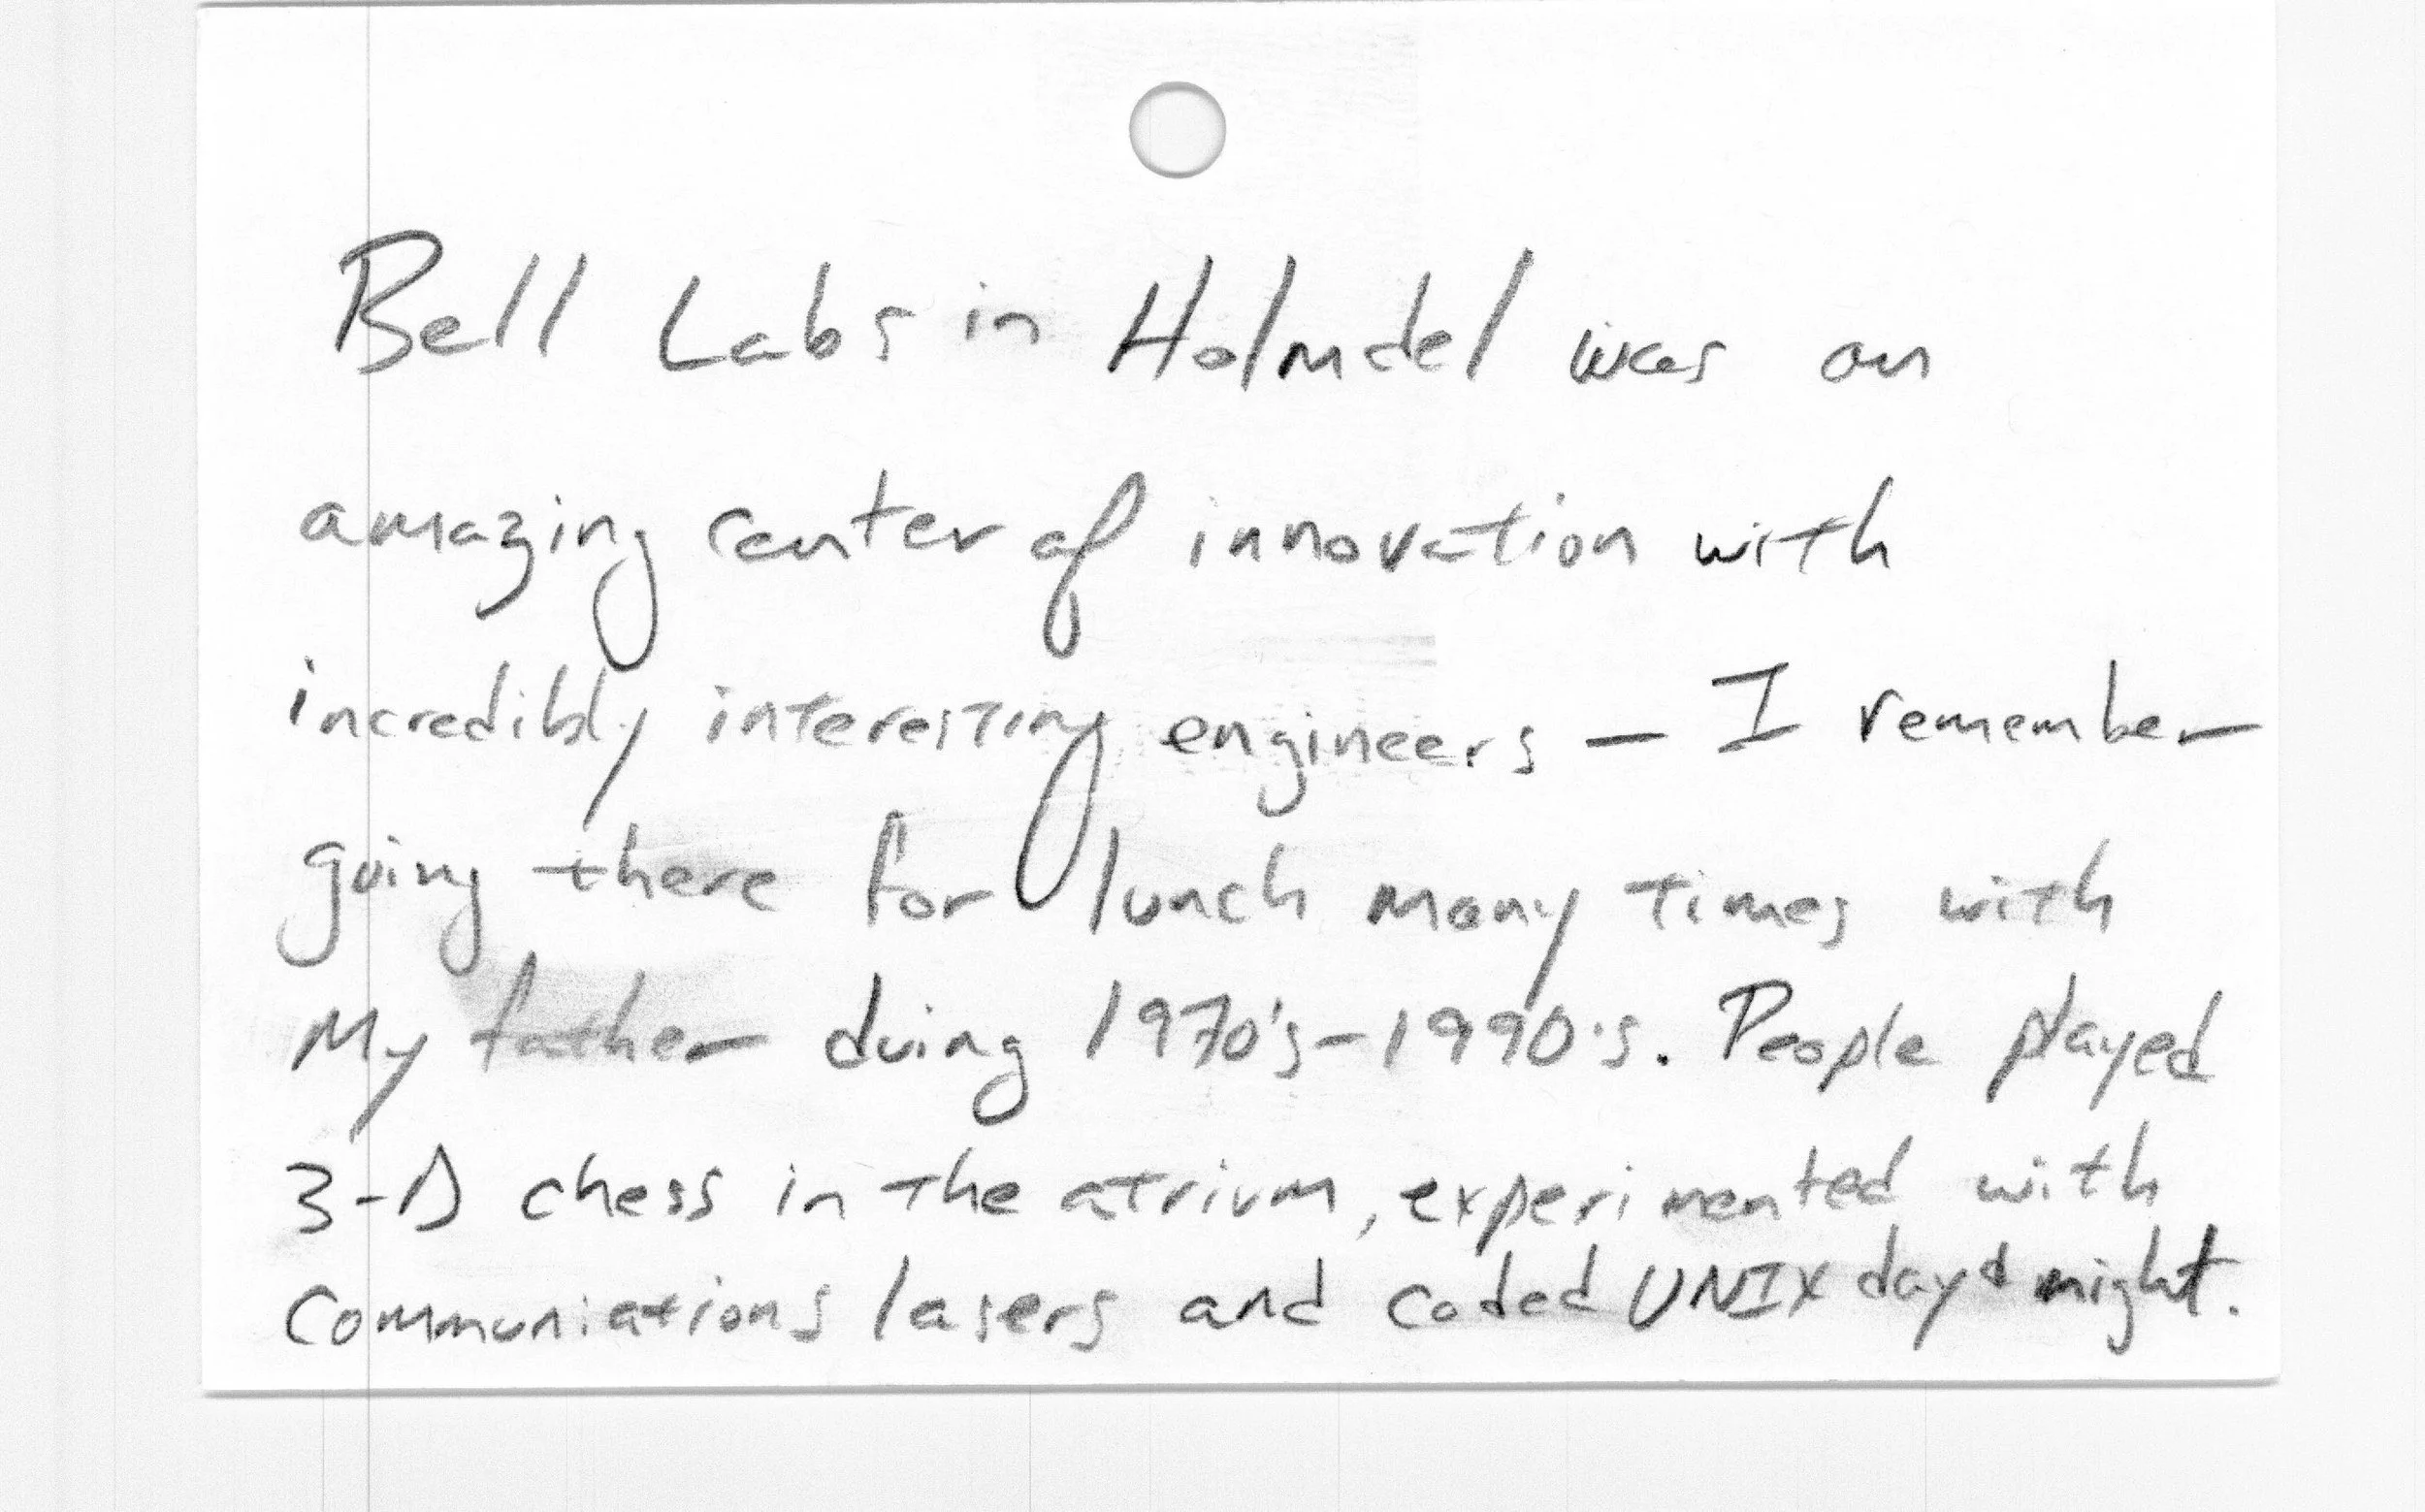 Bell Labs in Holmdel was an
amazing center of innovation with
incredibly interesting engineers — I remember
going there for lunch many times with
My father duing 1970's-1990's. People played
3-D chess in the atrium, experimented with
Communiations lasers and coded UNIX day & night.